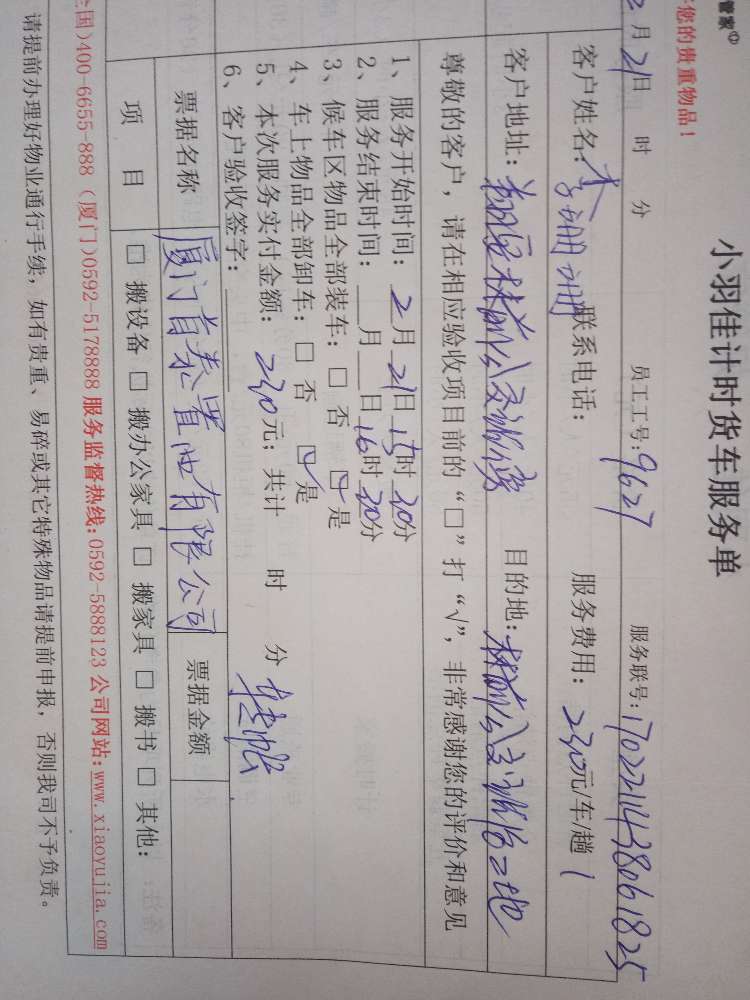 管家
您的贵重物品！
小羽佳计时货车服务单
2月21日 时 分 员工工号：9627 服务联号：1702211438061825
客户姓名：李珊珊 联系电话： 服务费用：230元/车/趟 1
客户地址：翔安林前公交 目的地：林前公交
尊敬的客户，请在相应验收项目前的“□”打“√”，非常感谢您的评价和意见
1、服务开始时间：2月21日15时30分
2、服务结束时间：___月___日16时30分
3、候车区物品全部装车：□ 否 ☑ 是
4、车上物品全部卸车：□ 否 ☑ 是
5、本次服务实付金额：230元；共计 时 分
6、客户验收签字： 转帐
票据名称 厦门首泰置业有限公司 票据金额
项 目 □ 搬设备 □ 搬办公家具 □ 搬家具 □ 搬书 □ 其他：
全国)400-6655-888 (厦门)0592-5178888 服务监督热线：0592-5888123 公司网站：www.xiaoyujia.com
请提前办理好物业通行手续，如有贵重、易碎或其它特殊物品请提前申报，否则我司不予负责。